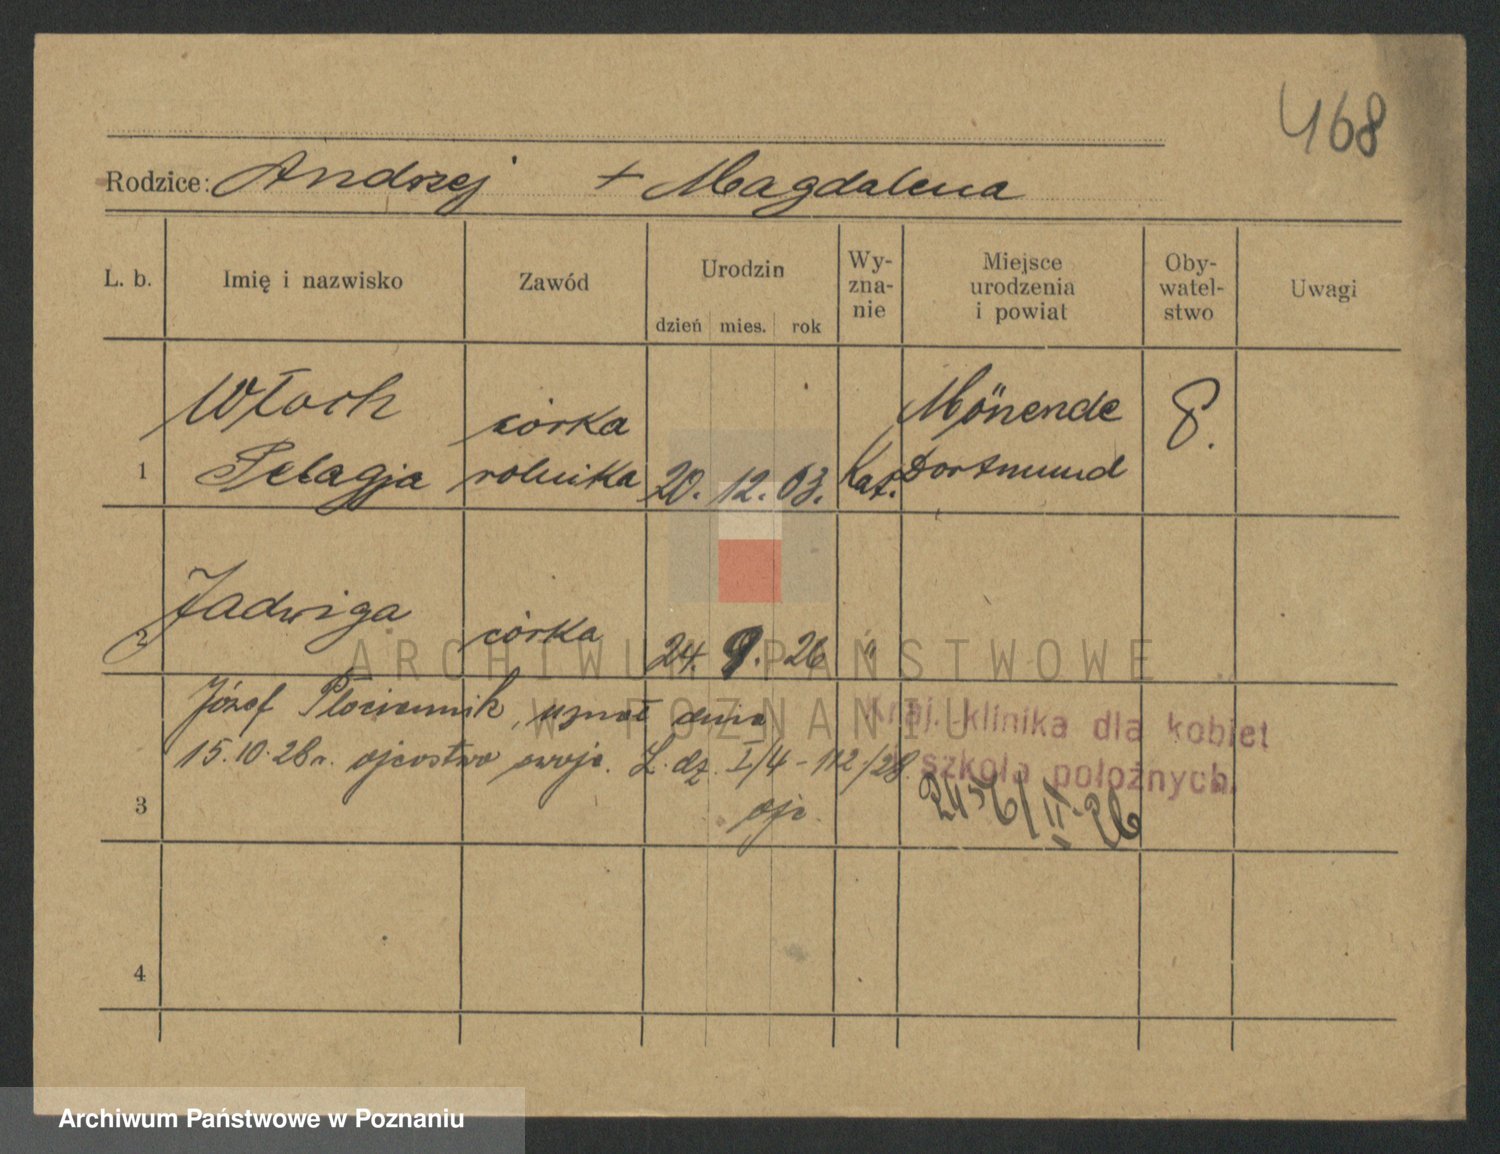 468
Rodzice: Andrzej + Magdalena
L. b. Imię i nazwisko Zawód Urodzin dzień mies. rok Wy-zna-nie Miejsce urodzenia i powiat Oby-watel-stwo Uwagi
Włoch córka Mönende P.
1 Pelagja rolnika 20. 12. 03. Kat. Dortmund
2 Jadwiga córka 24. 9. 26 "
Józef Płociennik, uznał dnia
15.10.28 r. ojcostwo swoje. L. dz. I/4 - 112/28.
Kraj. klinika dla kobiet
szkoła położnych.
3
4
ARCHIWUM PAŃSTWOWE
W POZNANIU
Archiwum Państwowe w Poznaniu